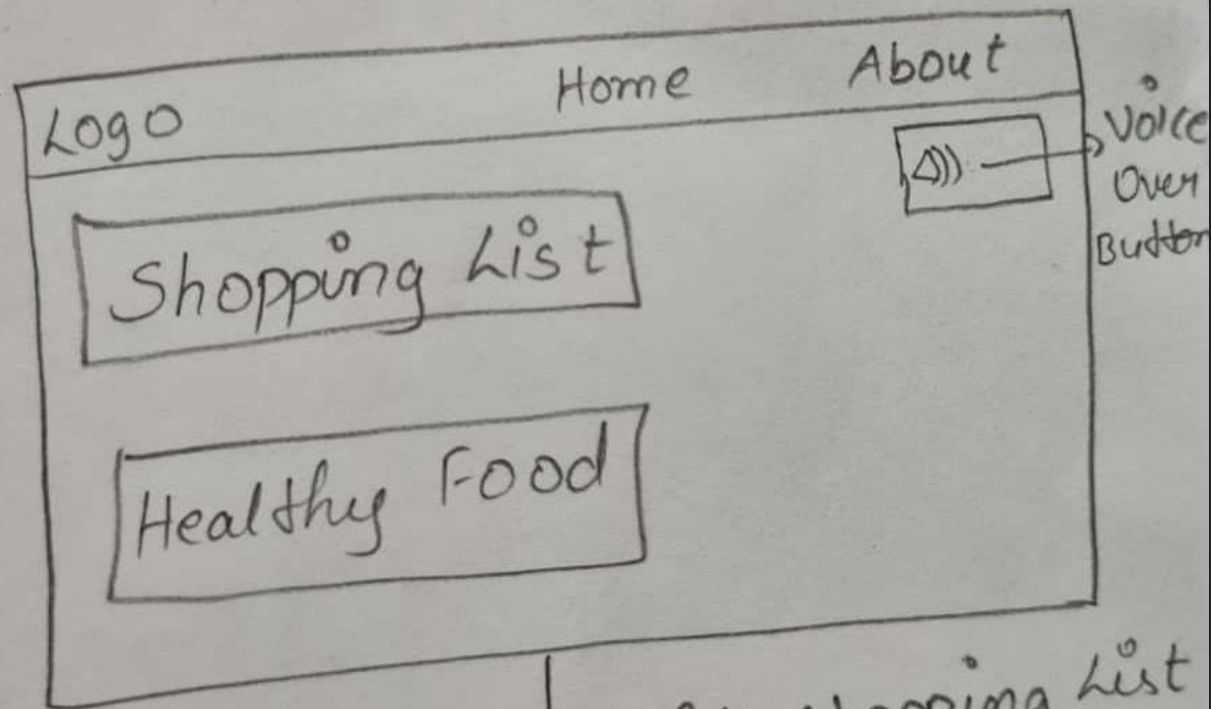 Logo Home About
Voice
Over
Button
Shopping List
Healthy Food
List